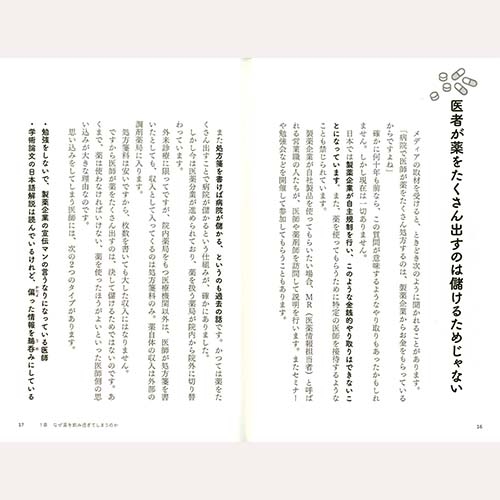 医者が薬をたくさん出すのは儲けるためじゃない
メディアの取材を受けると、ときどき次のように聞かれることがあります。
「病院で医師が薬をたくさん処方するのは、製薬企業からお金をもらっている
からですよね」
確かに何十年も前なら、この質問が意味するようなやり取りもあったかもしれ
ません。しかし現在は一切ありません。
日本では製薬企業が自主規制を行い、このような金銭的やり取りはできないこ
とになっています。また、薬を使ってもらうために特定の医師を接待するような
ことも禁じられています。
製薬企業が自社製品を使ってもらいたい場合、MR（医薬情報担当者）と呼ば
れる営業職の人たちが、医師や薬剤師を訪問して説明を行います。またセミナー
や勉強会などを開催して参加してもらうこともあります。
16
また処方箋を書けば病院が儲かる、というのも過去の話です。かつては薬をた
くさん出すことで病院が儲かるという仕組みが、確かにありました。
しかし今は医薬分業が進められており、薬を扱う薬局が院内から院外に切り替
わっています。
外来診療に限ってですが、院内薬局をもつ医療機関以外は、医師が処方箋を書
いたとしても、収入として入ってくるのは処方箋料のみ。薬自体の収入は外部の
調剤薬局に入ります。
処方箋料は安いですから、枚数を書いても大した収入にはなりません。
ですから医師が薬をたくさん出すのは、決して儲けるためではないのです。あ
くまで、薬は使わなければいけない、薬を使ったほうがよいといった医師側の思
い込みが大きな理由なのです。
思い込みをしてしまう医師には、次の2つのタイプがあります。
・勉強をしないで、製薬企業の宣伝マンの言うなりになっている医師
・学術論文の日本語解説は読んでいるけれど、偏った情報を鵜呑みにしている
17 1章 なぜ薬を飲み過ぎてしまうのか